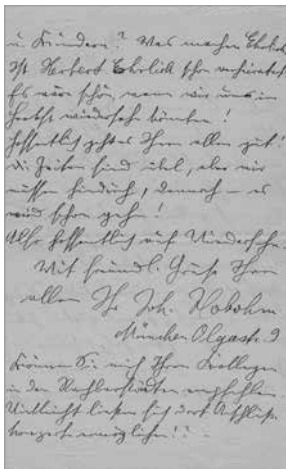 u. Kindern? Was machen Ehrlichs
Ist Herbert Ehrlich schon verheiratet
Es wäre schön, wenn wir uns im
Herbst wiedersehn könnten!
Hoffentlich gehts Ihnen allen gut!
Die Zeiten sind übel, aber wir
müssen hindurch, dennoch – es
wird schon gehn!
Also hoffentlich auf Wiedersehn.
Mit freundl. Grüße Ihnen
allen Ihr Joh. Hobohm
München Olgastr. 9
Können Sie mich Ihren Kollegen
in den Nachbarstädten empfehlen.
Vielleicht ließen sich dort Anschluß-
konzerte ermöglichen!?